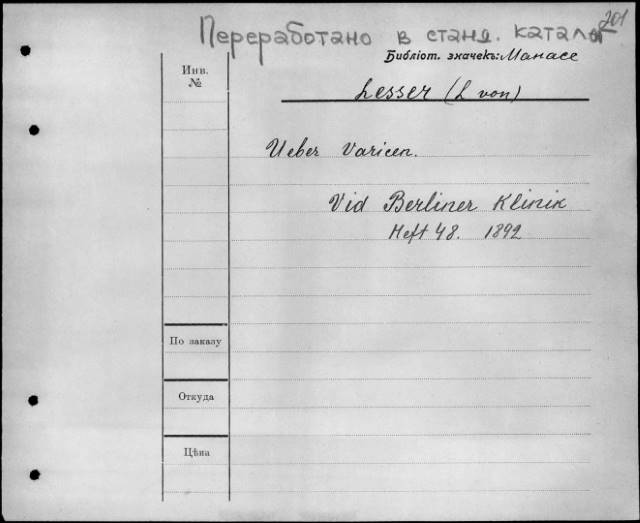 201
Переработано в станд. каталог
Библіот. значекъ: Манасе
Инв.
№
Lesser (L von)
Ueber Varicen.
Vid Berliner Klinik
Heft 48. 1892
По заказу
Откуда
Цѣна